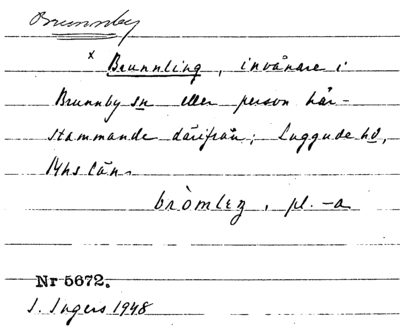 Brunnby
× Brunnling, invånare i
Brunnby sn eller person här-
stammande därifrån; Luggude hd,
Mhs län.
bròmlɛŋ, pl. -a
Nr 5672.
I. Ingers 1948